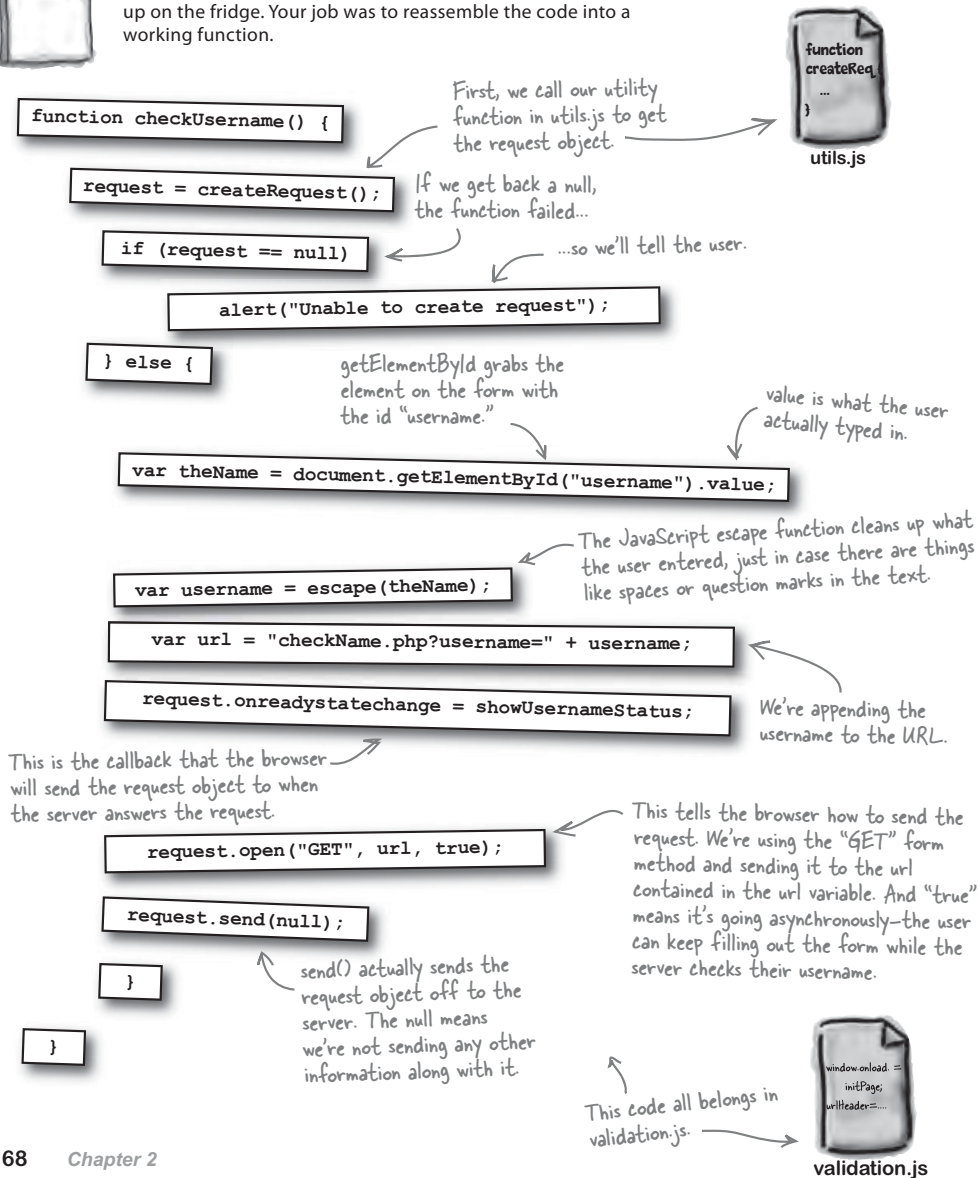 up on the fridge. Your job was to reassemble the code into a
working function.
function
createReq
...
}
utils.js
First, we call our utility
function in utils.js to get
the request object.
function checkUsername() {
request = createRequest();
If we get back a null,
the function failed...
if (request == null)
...so we'll tell the user.
alert("Unable to create request");
} else {
getElementById grabs the
element on the form with
the id "username."
value is what the user
actually typed in.
var theName = document.getElementById("username").value;
The JavaScript escape function cleans up what
the user entered, just in case there are things
like spaces or question marks in the text.
var username = escape(theName);
var url = "checkName.php?username=" + username;
request.onreadystatechange = showUsernameStatus;
We're appending the
username to the URL.
This is the callback that the browser
will send the request object to when
the server answers the request.
request.open("GET", url, true);
This tells the browser how to send the
request. We're using the "GET" form
method and sending it to the url
contained in the url variable. And "true"
means it's going asynchronously—the user
can keep filling out the form while the
server checks their username.
request.send(null);
send() actually sends the
request object off to the
server. The null means
we're not sending any other
information along with it.
}
}
This code all belongs in
validation.js.
window.onload =
initPage;
urlHeader=....
validation.js
68 Chapter 2